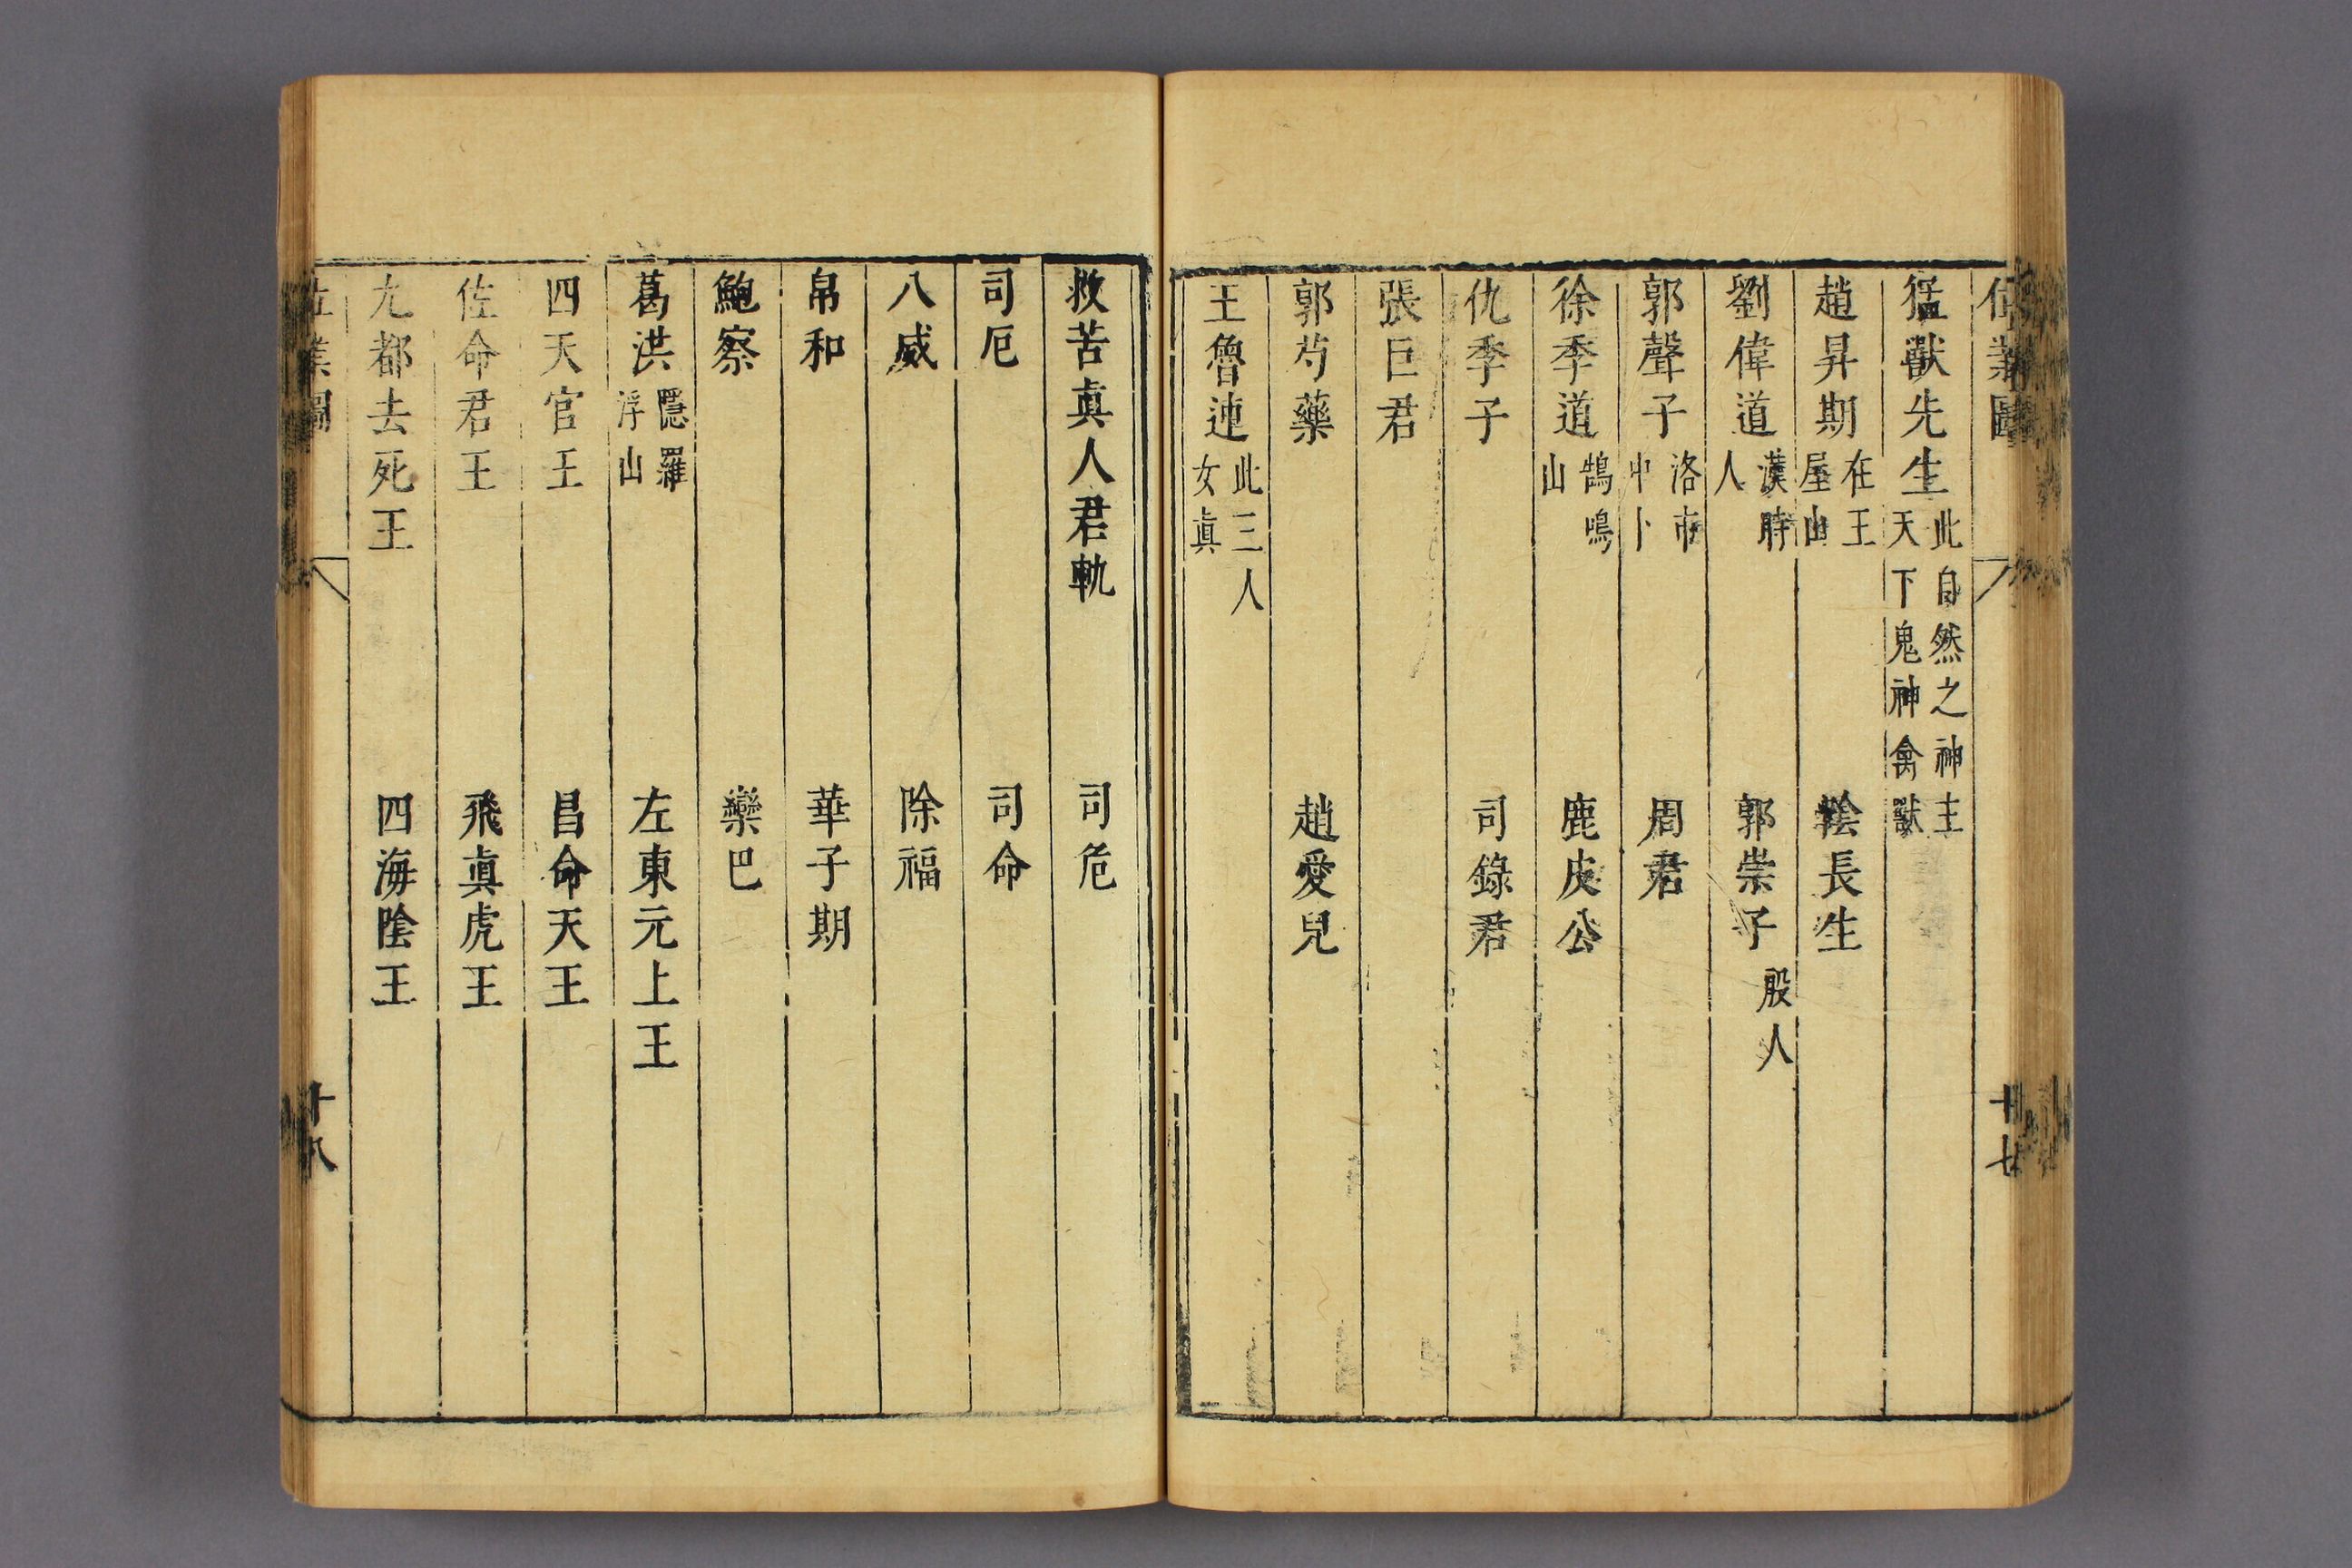 位業圖
十七
猛獸先生 此自然之神主天下鬼神禽獸
趙昇期 在王屋山 陰長生
劉偉道 漢時人 郭崇子 殷人
郭聲子 洛市中卜 周君
徐季道 鵠鳴山 鹿皮公
仇季子 司錄君
張巨君
郭芍藥 趙愛兒
王魯連 此三人女真
救苦真人君軌 司危
司厄 司命
八威 除福
帛和 華子期
鮑察 欒巴
葛洪 隱羅浮山 左東元上王
四天官王 昌命天王
佐命君王 飛真虎王
九都去死王 四海陰王
位業圖
十八